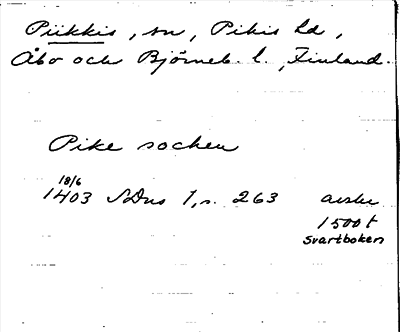 Piikkis, sn, Pikis hd,
Åbo och Björneb. l., Finland.
Pike sochen
18/6
1403 SDns 1, s. 263 avskr
1500 t
Svartboken